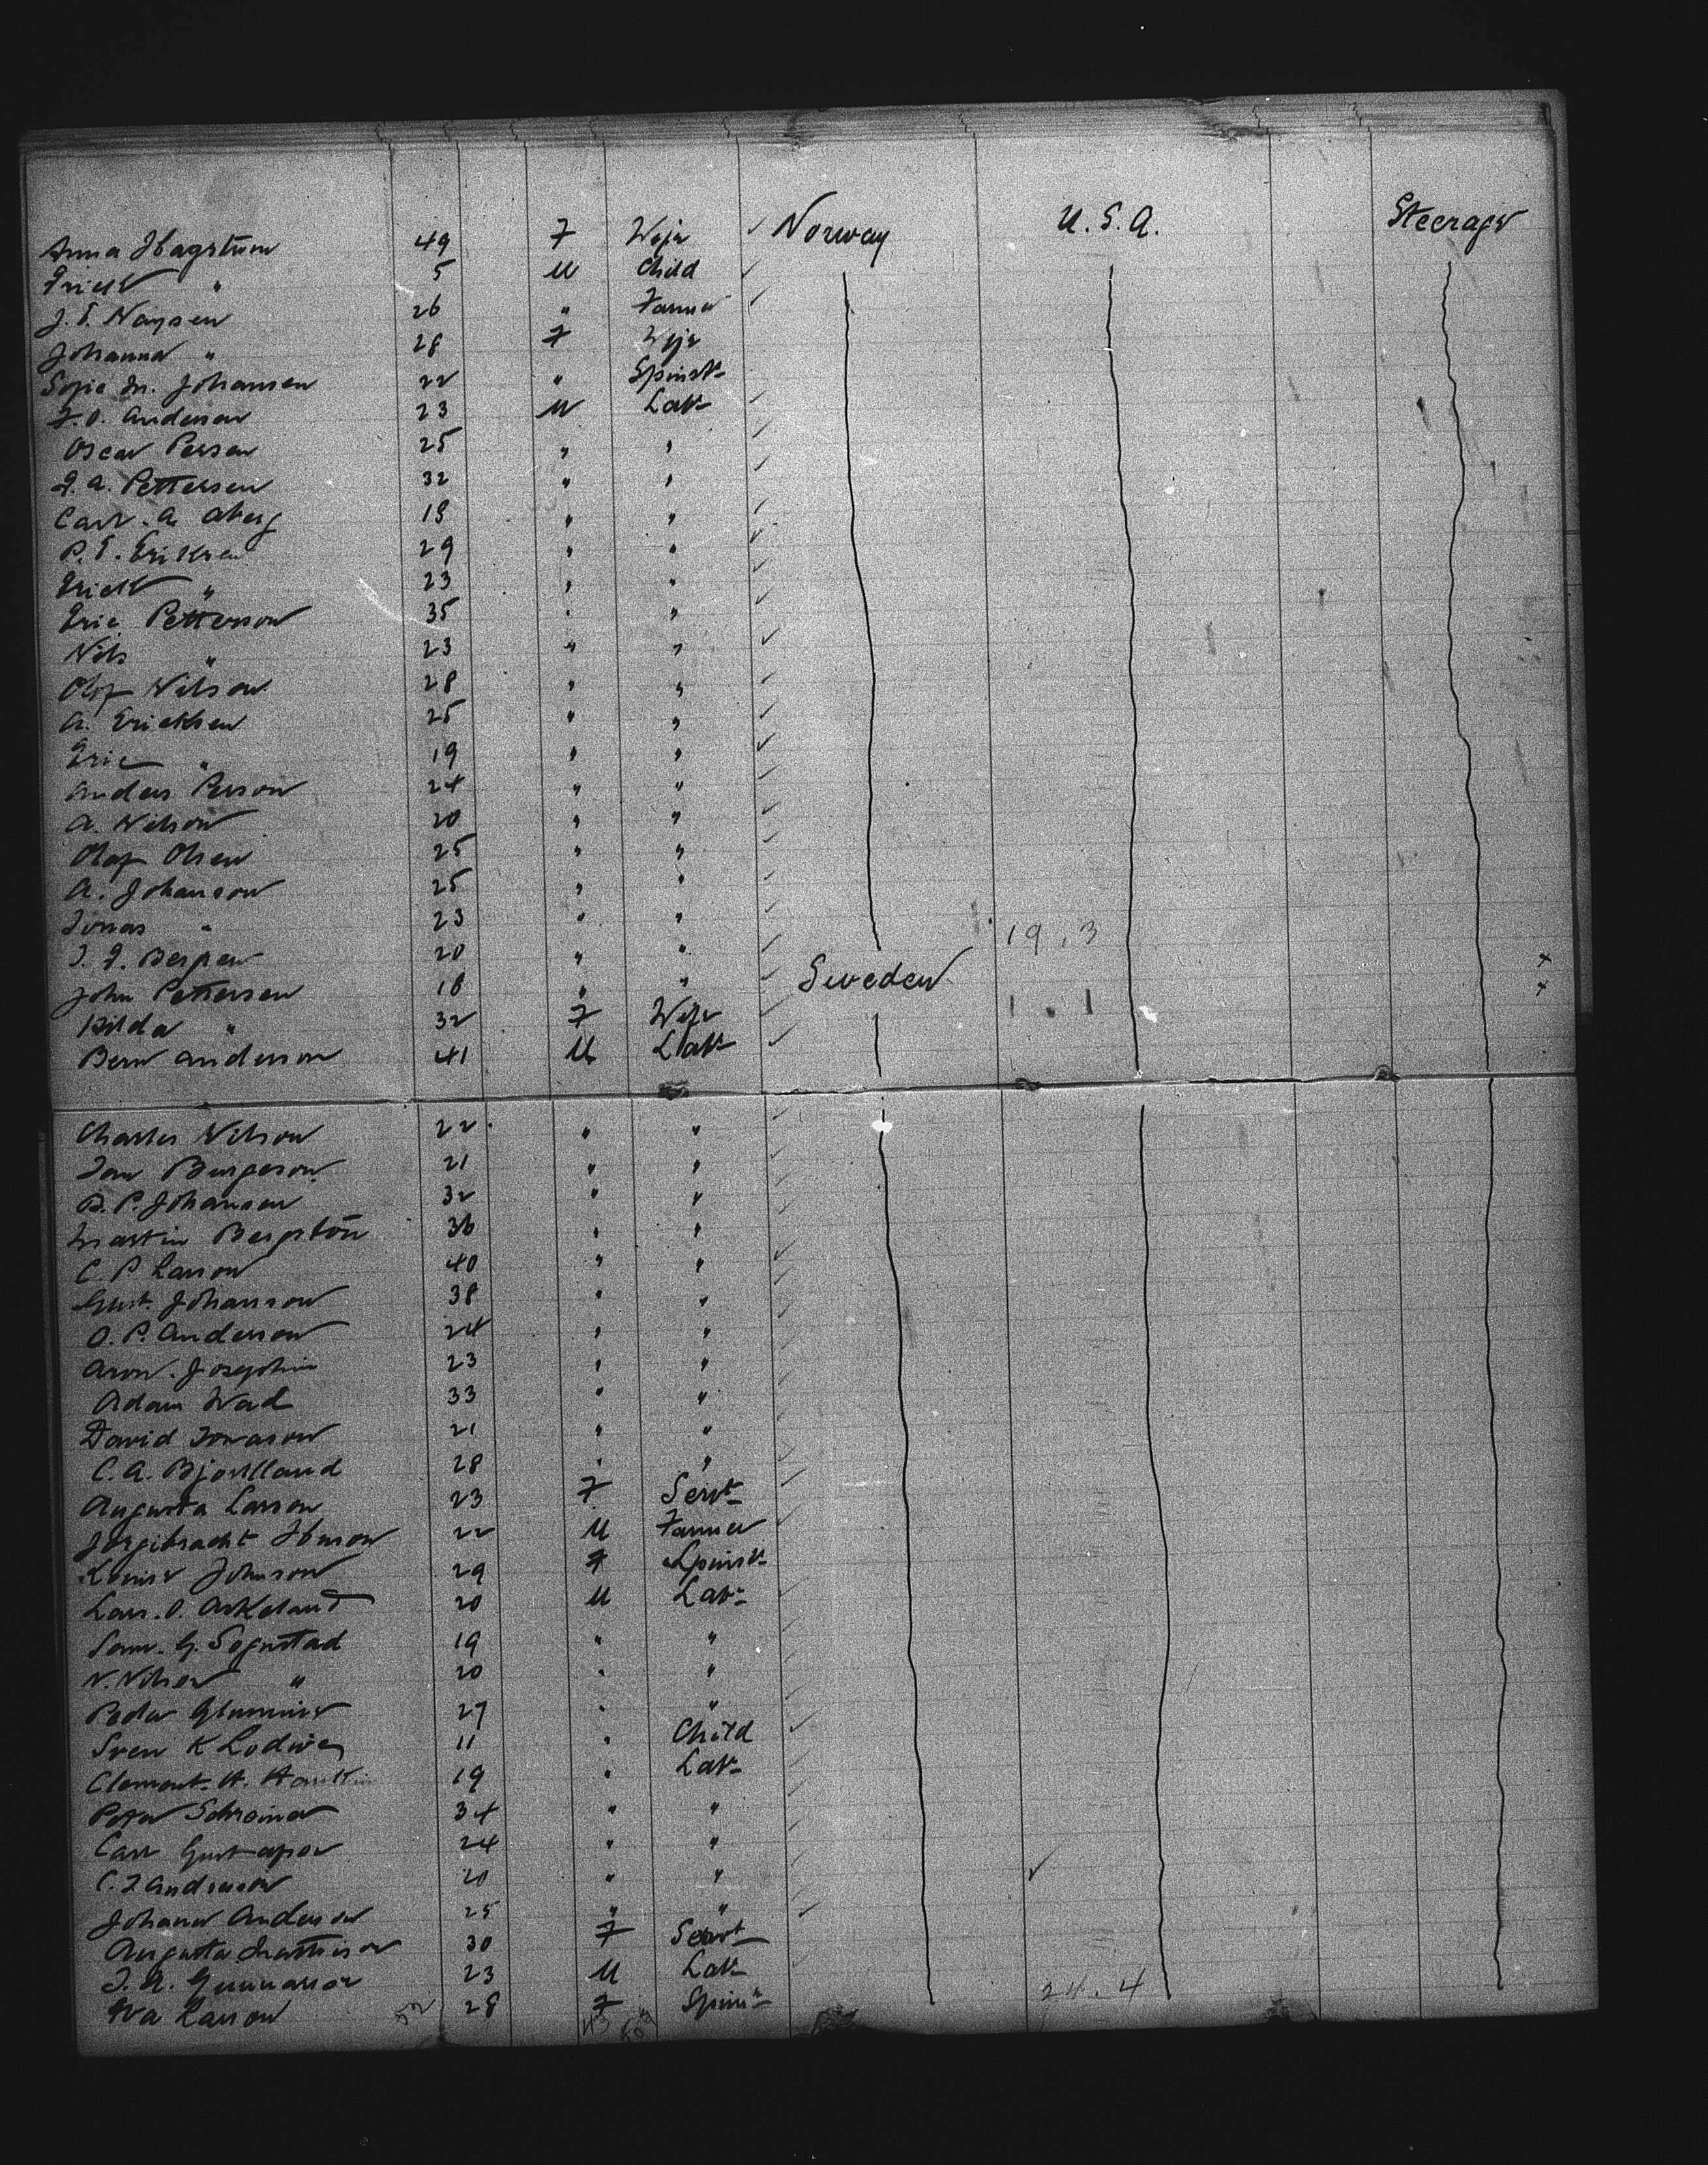 Anna Hagstrom 49 F Wife ✓ Norway U.S.A. Steerage
Erick " 5 M Child ✓
J. T. Naysen 26 " Farmer ✓
Johanna " 28 F Wife
Sofie M. Johansen 22 " Spinstr
F. O. Anderson 23 M Labr ✓
Oscar Persen 25 " " ✓
J. A. Pettersen 32 " " ✓
Carl. A. Aberg 18 " " ✓
P. E. Eriksen 29 " " ✓
Erick " 23 " " ✓
Eric Petterson 35 " " ✓
Nils " 23 " " ✓
Olof Nilson 28 " " ✓
A. Ericksen 25 " " ✓
Eric " 19 " " ✓
Anders Person 24 " " ✓
A. Nilson 20 " " ✓
Olof Olsen 25 " " ✓
A. Johanson 25 " " ✓
Jonas " 23 " " ✓ 19.3
J. J. Bergen 20 " " ✓ x
John Pettersen 18 " " ✓ Sweden x
Hilda " 32 F Wife ✓ 1.1
Bern Anderson 41 M Labr ✓
Charles Nilson 22 " " ✓
Jan Burgeson 21 " " ✓
B. P. Johansen 32 " " ✓
Martin Bergstön 36 " " ✓
C. P. Larson 40 " " ✓
Gust. Johanson 38 " " ✓
O. P. Anderson 24 " " ✓
Aron. Josephin 23 " " ✓
Adam Wad 33 " " ✓
David Jonason 21 " " ✓
C. A. Bjorklland 28 " " ✓
Augusta Larson 23 F Servt ✓
22 M Farmer ✓
Louise Johnson 29 F Spinstr
Lars. O. Askeland 20 M Labr ✓
Sam. G. Sognstad 19 " " ✓
N. Nilsen " 20 " " ✓
Peder 27 " " ✓
Sven K Lodwig 11 " Child ✓
Clement. H. 19 " Labr ✓
Peter Schreiner 34 " " ✓
Carl Gustafson 24 " " ✓
C. J Anderson 20 " " ✓ ✓
Johan Anderson 25 " " ✓
Augusta Mattison 30 F Servt
J. A. Gunnarson 23 M Labr ✓
Eva Larson 52 28 F Spinstr 24.4
43